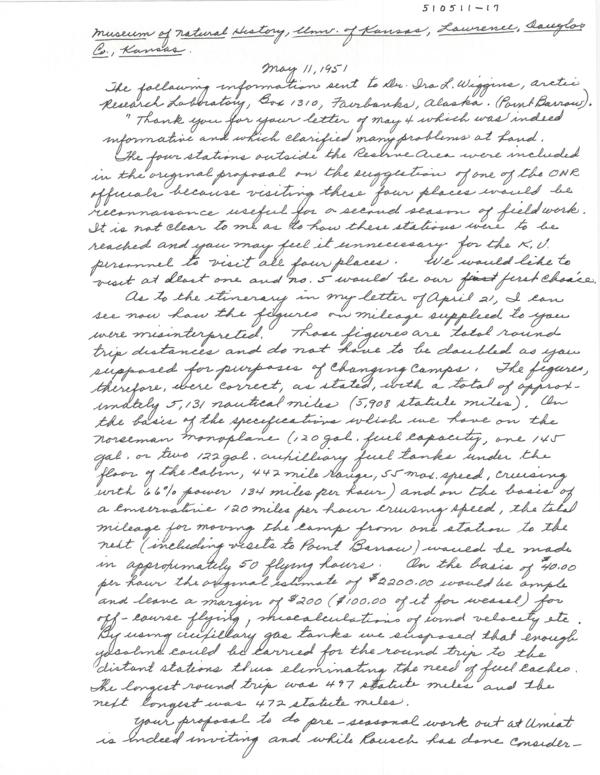 510511-17
Museum of Natural History, Univ. of Kansas, Lawrence, Douglas
Co., Kansas.
May 11, 1951
The following information sent to Dr. Ira L. Wiggins, Arctic
Research Laboratory, Box 1310, Fairbanks, Alaska. (Point Barrow).
"Thank you for your letter of May 4 which was indeed
informative and which clarified many problems at hand.
The four stations outside the Reserve Area were included
in the original proposal on the suggestion of one of the ONR
officials because visiting these four places would be
reconnaisance useful for a second season of field work.
It is not clear to me as to how these stations were to be
reached and you may feel it unnecessary for the K.U.
personnel to visit all four places. We would like to
visit at least one and no. 5 would be our first first choice.
As to the itinerary in my letter of April 21, I can
see now how the figures on mileage supplied to you
were misinterpreted. Those figures are total round
trip distances and do not have to be doubled as you
supposed for purposes of changing camps. The figures,
therefore, were correct, as stated, with a total of approx-
imately 5,131 nautical miles (5,908 statute miles). On
the basis of the specifications which we have on the
Norseman monoplane (120 gal. fuel capacity, one 145
gal. or two 122 gal. auxilliary fuel tanks under the
floor of the cabin, 442 mile range, 55 max. speed, cruising
with 66% power 134 miles per hour) and on the basis of
a conservative 120 miles per hour cruising speed, the total
mileage for moving the camp from one station to the
next (including visits to Point Barrow) would be made
in approximately 50 flying hours. On the basis of $40.00
per hour the original estimate of $2200.00 would be ample
and leave a margin of $200 ($100.00 of it for weasel) for
off-course flying, miscalculations of wind velocity etc.
By using auxillary gas tanks we supposed that enough
gasoline could be carried for the round trip to the
distant stations thus eliminating the need of fuel caches.
The longest round trip was 497 statute miles and the
next longest was 472 statute miles.
Your proposal to do pre-seasonal work out at Umiat
is indeed inviting and while Rausch has done consider-